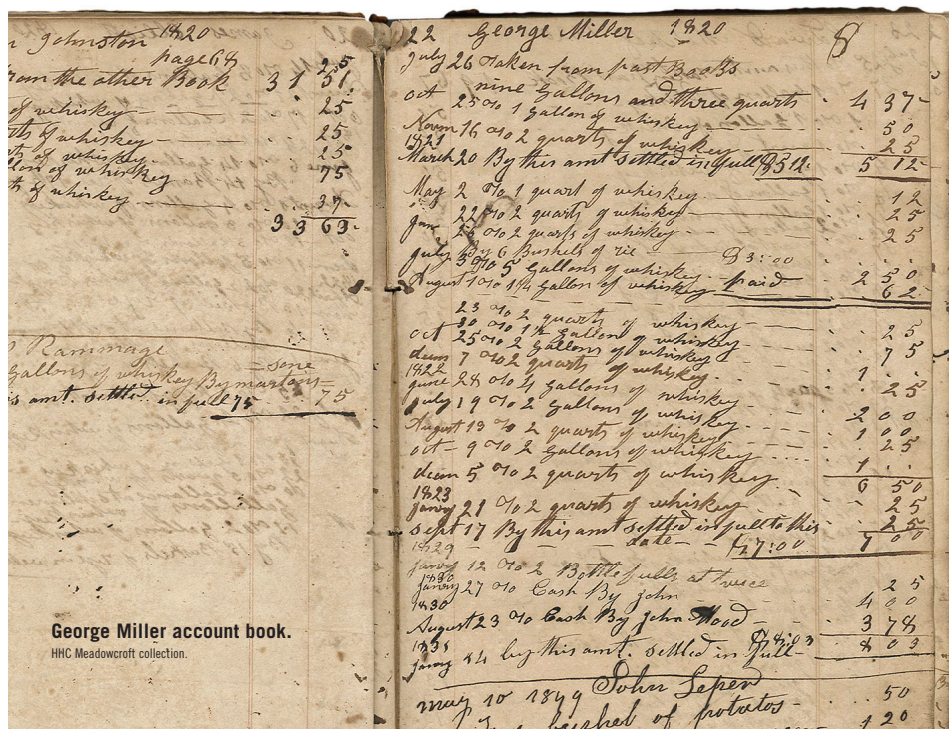 Johnston 1820
page 68
from the other Book 31 51
of whiskey 25
of whiskey 25
of whiskey 25
of whiskey 75
of whiskey 37
33 63
Rammage
Gallons of whiskey By
amt. settled in full 75 75
George Miller account book.
HHC Meadowcroft collection.
22 George Miller 1820 8
July 26 Taken from past Books
nine Gallons and three quarts 4 37
oct 25 1 Gallon of whiskey 50
Novm 16 2 quarts of whiskey 25
1821
March 20 By this amt settled in full $5 12 5 12
May 2 1 quart of whiskey 12
22 2 quarts of whiskey 25
2 quarts of whiskey 25
By 6 Bushels of rie $3:00
July 5 Gallons of whiskey 2 50
August 1 1¼ Gallon of whiskey paid 62
23 2 quarts of whiskey 25
30 1½ Gallons of whiskey 75
oct 25 2 Gallons of whiskey 1
decm 7 2 quarts of whiskey 25
1822
June 28 4 Gallons of whiskey 2 00
July 19 2 Gallons of whiskey 1 00
August 13 2 quarts of whiskey 25
oct 9 2 Gallons of whiskey 1
decm 5 2 quarts of whiskey 6 50
1823 25
Janry 21 2 quarts of whiskey 25
Sept 17 By this amt settled in full to this 7 00
date $7:00
1829
Janry 12 2 Bottle fulls at twice 25
1830
Janry 27 Cash By John 4 00
1830
August 23 Cash By John Wood 3 78
$8:03 8 03
Janry 24 by this amt. settled in full
may 10 1849 John Leper 50
bushel of potatos 1 20